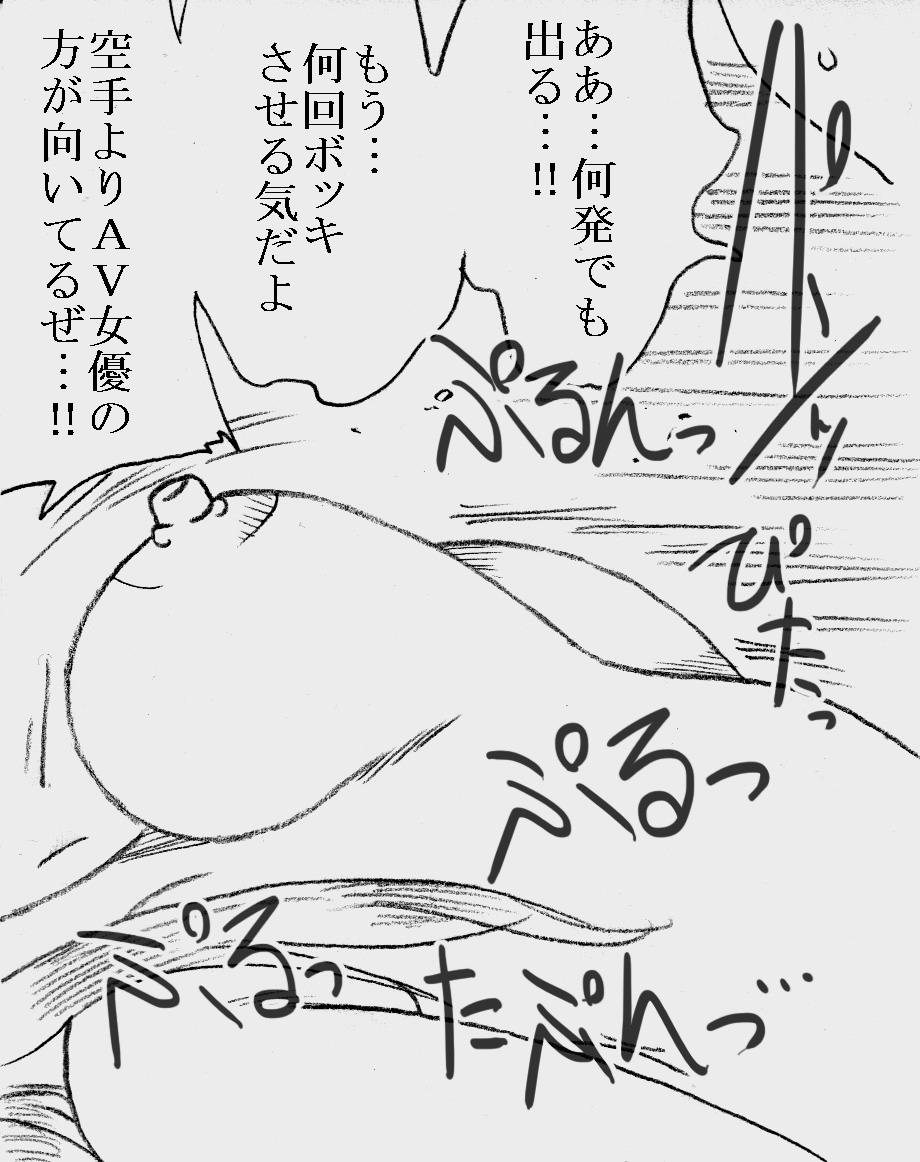 ああ…何発でも
出る…!!
もう…
何回ボッキ
させる気だよ
空手よりＡＶ女優の
方が向いてるぜ…!!
ぷるんっ
ぴたっ
ぷるっ
ぷるっ
たぷんづ…